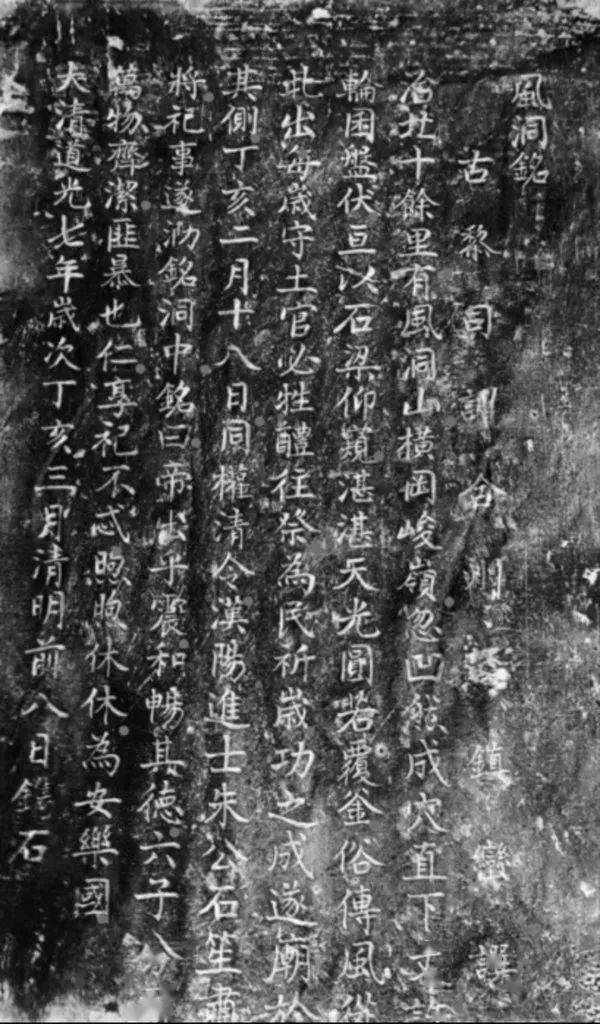 風洞銘
古黎司訓合州 鎮巒譔
治北十餘里有風洞山橫岡峻嶺忽凹然成穴直下丈許
輪囷盤伏亘以石梁仰窺湛湛天光圓若覆釜俗傳風從
此出每歲守土官必牲醴往祭為民祈歲功之成遂廟於
其側丁亥二月十八日同權清令漢陽進士朱公石笙肅
將祀事遂泐銘洞中銘曰帝出乎震和暢其德六子八
萬物齊潔匪暴也仁享祀不忒煦煦休休為安樂國
大清道光七年歲次丁亥三月清明前八日鐫石